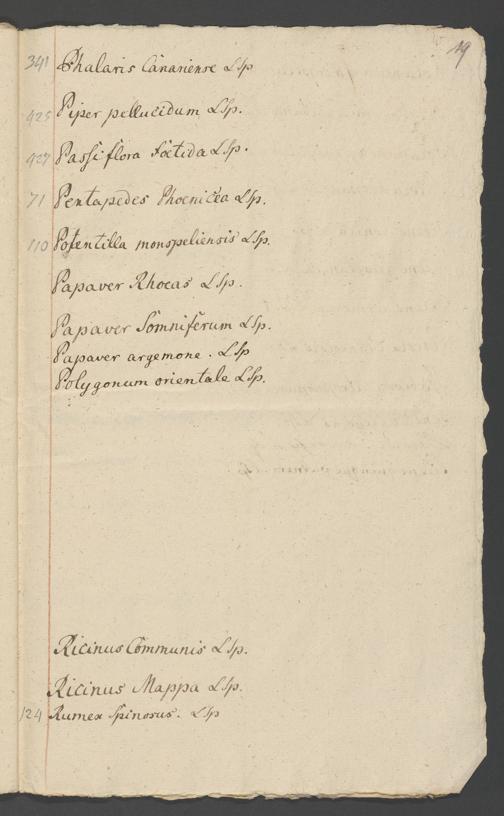 19
341 Phalaris Canariense LSp
425 Piper pellucidum LSp.
427 Passiflora foetida LSp.
71 Pentapedes Phoenicea LSp.
110 Potentilla monspeliensis LSp.
Papaver Rhoeas LSp.
Papaver Somniferum LSp.
Papaver argemone. LSp
Polygonum orientale LSp.
Ricinus Communis LSp.
Ricinus Mappa LSp.
124 Rumex Spinosus. LSp